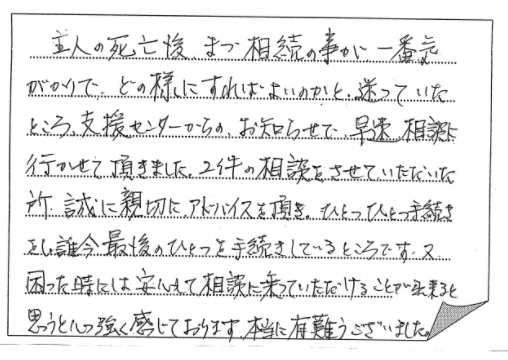 主人の死亡後 まづ相続の事が、一番気
がかりで、どの様にすればよいのかと、迷っていた
ところ、支援センターからの、お知らせで、早速 相談に
行かせて頂きました。2件の相談をさせていただいた
所 誠に親切に、アドバイスを頂き、ひとつひとつ手続き
をし 今最後のひとつを手続きしているところです。又
困った時には 安心して相談に乗っていただけることが出来ると
思うと心強く感じております。本当に有難うございました。